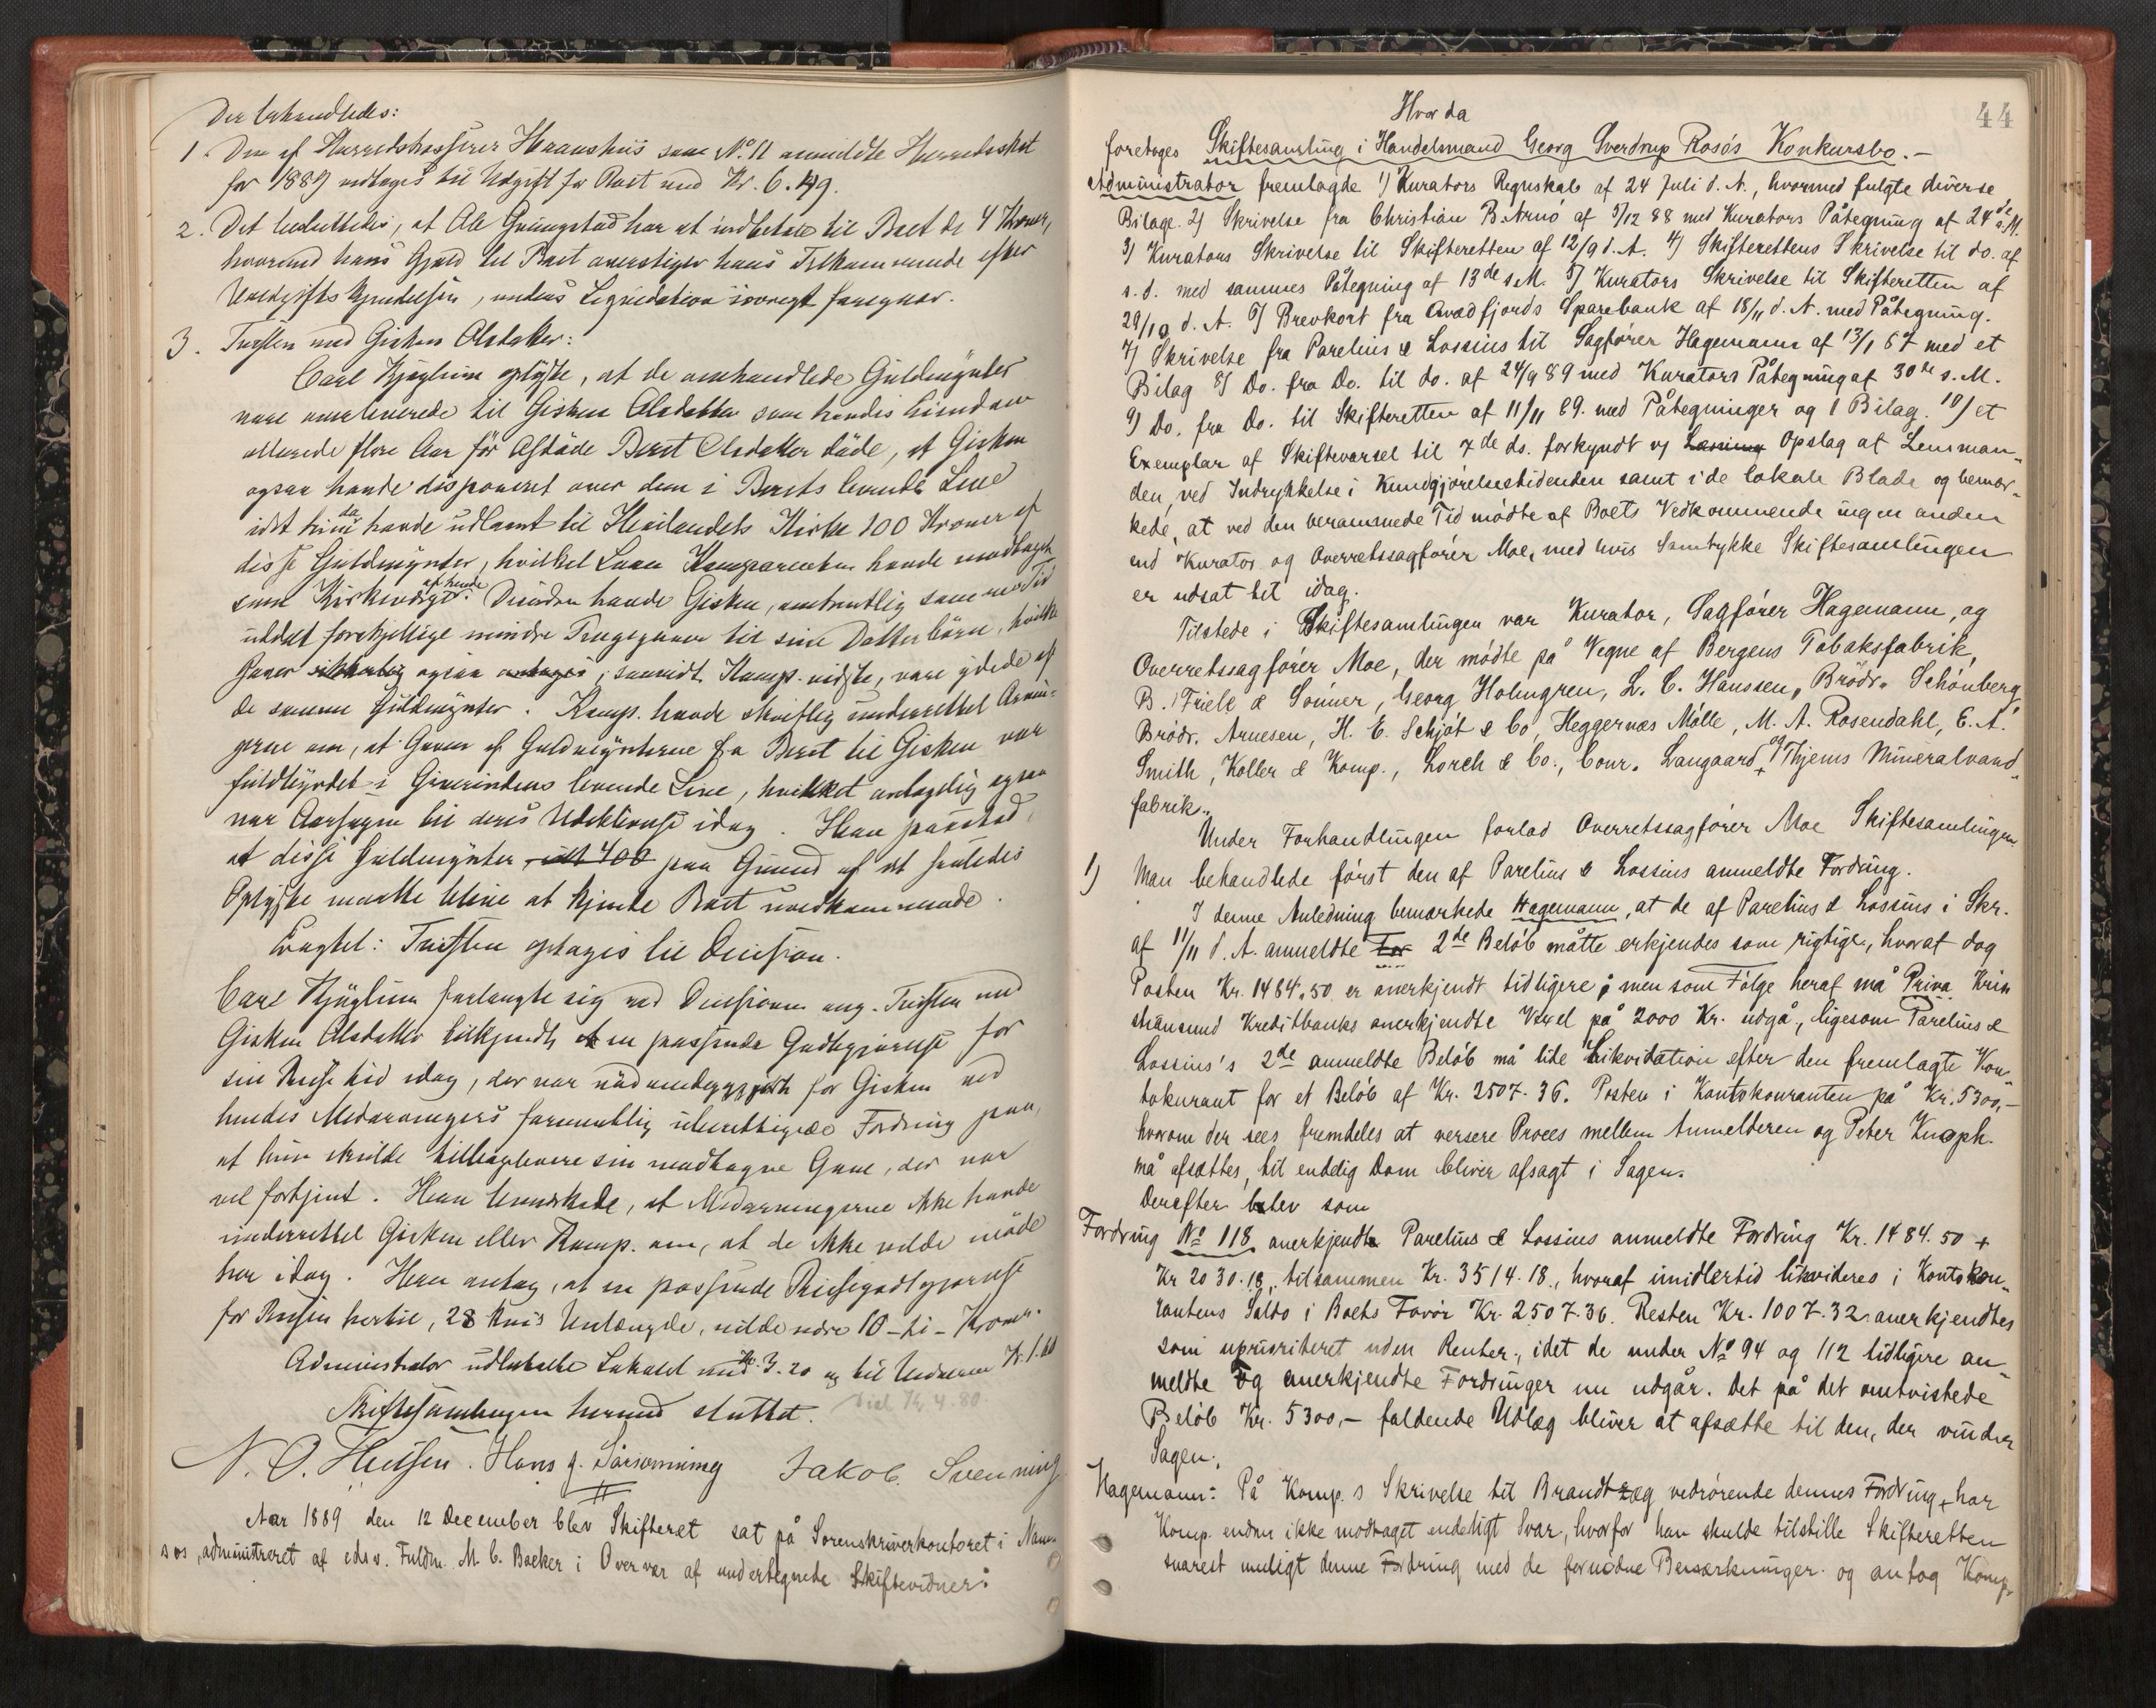 Der behandledes:
1. Den af Herredskasserer Haanshus som No. 11 anmeldte Herredsskat
for 1889 udtages til Udgift for Boet med Kr. 6.49.
2. Det besluttedes, at Ole Gringstad har at indbetale til Boet de 4 Kroner,
hvormed hans Gjæld til Boet overstiger hans Tilkommende efter
Uredgifts Gjendelsen, medens Liqvidation iøvrigt foregaar.
3. Tvisten med Gisken Olsdatter:
Carl Kjøglum oplyste, at de omhandlede Guldmynter
vare overleverede til Gisken Olsdatter som hendes Eiendom
allerede flere Aar før Afdøde Beret Olsdatter døde, at Gisken
ogsaa havde disponeret over dem i Berets levende Live
idet hun da havde udlaant til Heilandets Kirke 100 Kroner af
disse Guldmynter, hvilket Laan Komparenten havde modtaget
som Kirkeværge af hende. Desuden havde Gisken, omtrentlig samme Tid
uddelt forskjellige mindre Pengegaver til sine Datterbørn, hvilke
Gaver sikkerlig ogsaa antages, saavidt Komp. vidste, vare ydede af
de samme Guldmynter. Komp. havde skriftlig underrettet Arvin-
gerne om, at Gaven af Guldmynterne fra Beret til Gisken var
fuldbyrdet i Giverindens levende Live, hvilket antagelig ogsaa
var Aarsagen til deres Udeblivelse idag. Han paastod,
at disse Guldmynter, idet 400 paa Grund af det saaledes
Oplyste maatte blive at kjende Boet uvedkommende.
Eragtet: Tvisten optages til Decision.
Carl Kjøglum forlangte sig ved Decisionen ang. Tvisten med
Gisken Olsdatter tilkjendt en passende Godtgjørelse for
sin Reise hid idag, der var nødvendiggjort for Gisken ved
hendes Medarvingers formentlig uberettigede Fordring paa,
at hun skulde tilbagelevere sin modtagne Gave, der var
vel fortjent. Han bemærkede, at Medarvingerne ikke havde
underrettet Gisken eller Komp. om, at de ikke vilde møde
her idag. Han antog, at en passende Reisegodtgjørelse
for Reisen hertil, 28 Km's Veilængde, vilde være 10 - ti - Kroner.
Administrator udbetalte Lokalet med Kr. 3.20 og til Vidnerne Kr. 1.60
Skiftesamlingen hermed sluttet. Kr. 4.80
N. O. Hutsen. Hans J. Jakob Svenning
Aar 1889 den 12 December blev Skifteret sat på Sorenskriverkontoret i Nam-
sos, administreret af edsv. Fuldm. M. C. Backer i Overvær af undertegnede Skiftevidner:
44
Hvor da
foretoges Skiftesamling i Handelsmand Georg Sverdrup Rosøs Konkursbo.-
Administrator fremlagde 1) Kurators Regnskab af 24 Juli d. A., hvormed fulgte diverse
Bilage. 2) Skrivelse fra Christian B. Arnø af 5/12 88 med Kurators Påtegning af 24de s. M.
3) Kurators Skrivelse til Skifteretten af 12/9 d. A. 4) Skifterettens Skrivelse til do. af
s. d. med sammes Påtegning af 13de s. M. 5) Kurators Skrivelse til Skifteretten af
29/10 d. A. 6) Brevkort fra Qvædfjords Sparebank af 18/11 d. A. med Påtegning.
7) Skrivelse fra Parelius & Lossius til Sagfører Hagemann af 13/1 67 med et
Bilag 8) Do. fra Do. til do. af 24/9 89 med Kurators Påtegning af 30te s. M.
9) Do. fra Do. til Skifteretten af 11/11 89. med Påtegninger og 1 Bilag. 10) et
Exemplar af Skiftevarsel til 7de ds. forkyndt v/ Læsning Opslag af Lensman-
den, ved Indrykkelse i Kundgjørelsestidenden samt i de lokale Blade og bemær-
kede, at ved den berammede Tid mødte af Boets Vedkommende ingen anden
end Kurator og Overretssagfører Moe, med hvis Samtykke Skiftesamlingen
er udsat til idag.
Tilstede i Skiftesamlingen var Kurator, Sagfører Hagemann, og
Overretssagfører Moe, der mødte på Vegne af Bergens Tobaksfabrik,
B. Friele & Sønner, Georg Holmgren, L. C. Hanssen, Brødr. Schönberg,
Brødr. Arnesen, H. E. Schjøt & Co, Heggernæs Mølle, M. A. Rosendahl, E. A.
Smith, Koller & Komp., Lorch & Co., Conr. Langaard og Thjems Mineralvand-
fabrik.
Under Forhandlingen forlod Overretssagfører Moe Skiftesamlingen
1) Man behandlede først den af Parelius & Lossius anmeldte Fordring.
I denne Anledning bemærkede Hagemann, at de af Parelius & Lossius i Skr.
af 11/11 d. A. anmeldte For 2de Beløb måtte erkjendes som rigtige, hvoraf dog
Posten Kr. 1484.50 er anerkjendt tidligere; men som Følge heraf må Priva Kris
stiansund Kreditbanks anerkjendte Vexel på 2000 Kr. udgå, ligesom Parelius &
Lossius's 2de anmeldte Beløb må lide Likvidation efter den fremlagte Kon-
tokurant for et Beløb af Kr. 2507.36. Posten i Kontokouranten på Kr. 5300,-
hvorom der sees fremdeles at versere Proces mellem Anmelderen og Peter Knoph.
må afsættes, til endelig Dom bliver afsagt i Sagen.
Derefter blev som
Fordring No 118 anerkjendt Parelius & Lossius anmeldte Fordring Kr. 1484.50 +
Kr 2030.18, tilsammen Kr. 3514.18, hvoraf imidlertid likvideres i Kontokou-
rantens Saldo i Boets Favør Kr. 2507.36. Resten Kr. 1007.32 anerkjendtes
som uprioriteret uden Renter, idet de under No 94 og 112 tidligere an-
meldte og anerkjendte Fordringer nu udgår. Det på det omtvistede
Beløb Kr. 5300,- faldende Udlæg bliver at afsætte til den, der vinder
Sagen.
Hagemann: På Komp.s Skrivelse til Brandtzæg vedrørende dennes Fordring, har
Komp. endnu ikke modtaget endeligt Svar, hvorfor han skulde tilstille Skifteretten
snarest muligt denne Fordring med de fornødne Bemærkninger og antog Komp.